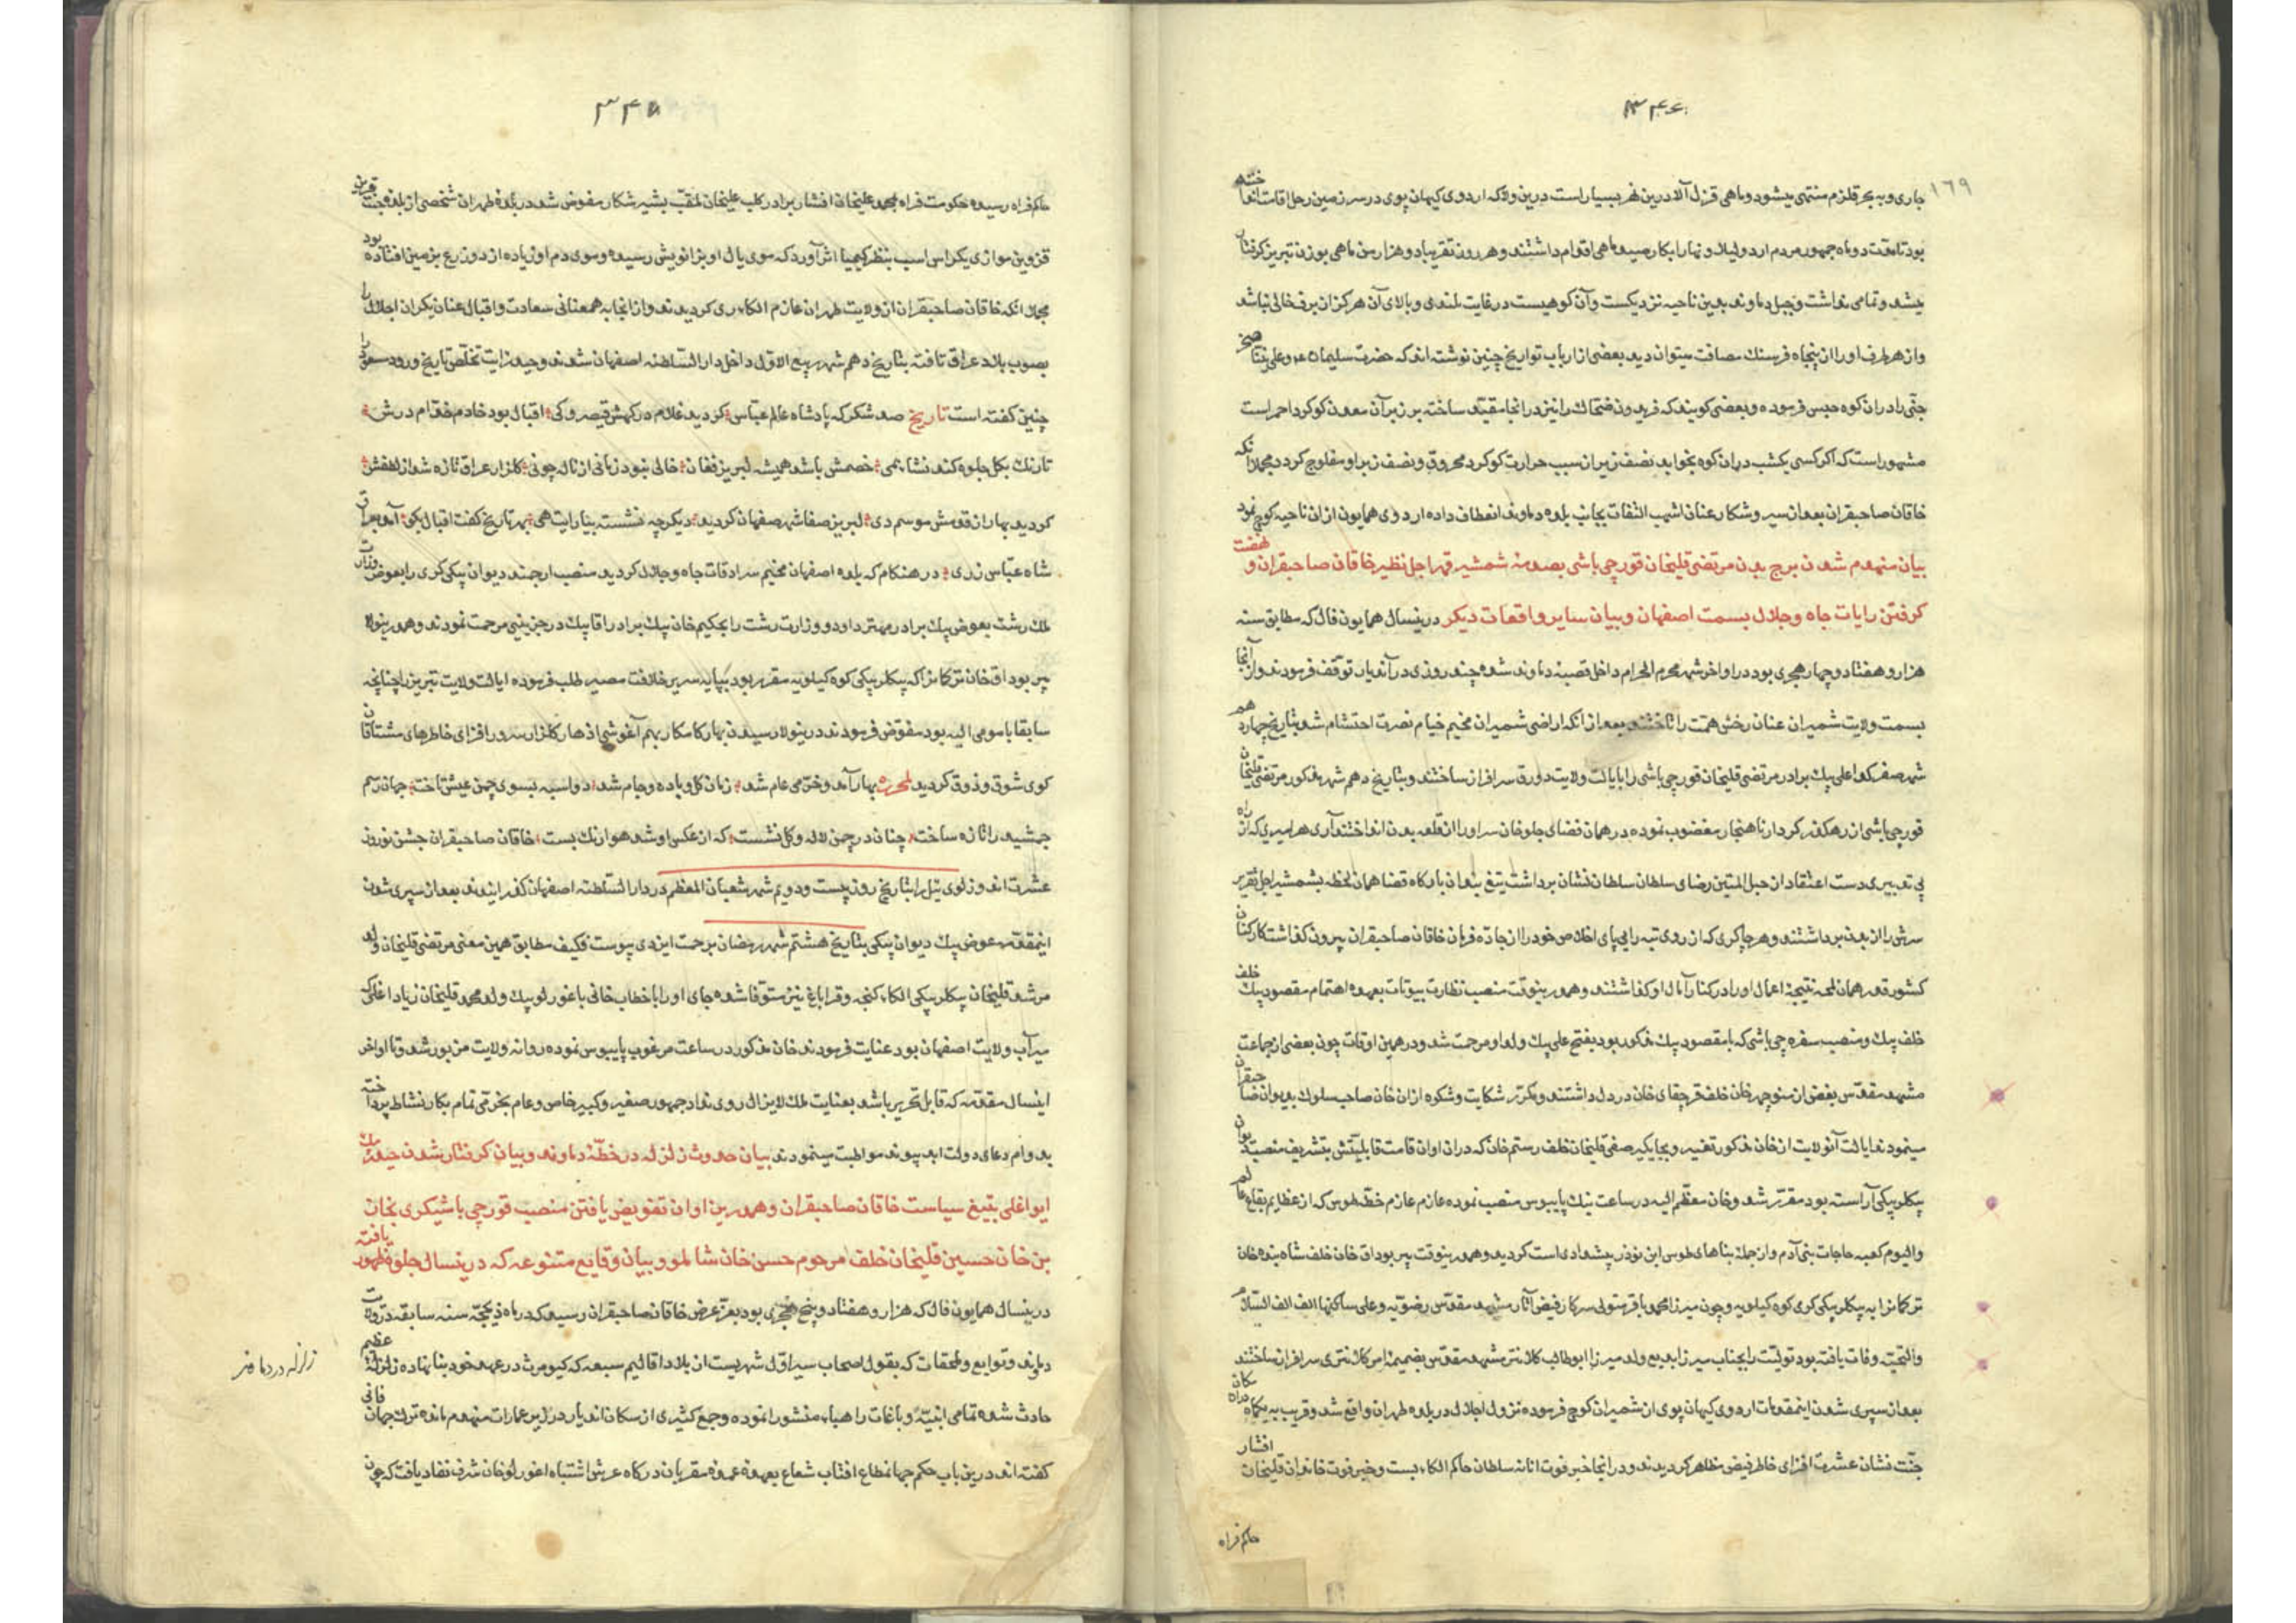 ۳۴۶
۱۶۹
جاری و به بحر قلزم منتهی میشود و ماهی قزل آلا درین نهر بسیار است درین ولا که اردوی کیهان پوی در سرزمین رحل اقامت انداخته
بود تا مدت دو ماه جمهور مردم اردو لیلا و نهارا بکار صید ماهی اقدام داشتند و هر روز تقریبا دو هزار من ماهی بوزن تبریز گرفتار
میشد و تمامی نداشت و جبل دماوند بدین ناحیه نزدیکست و آن کوهیست در غایت بلندی و بالای آن هرگز از برف خالی نباشد
و از هر طرف او را از پنجاه فرسنک مسافت میتوان دید بعضی از ارباب تواریخ چنین نوشته اند که حضرت سلیمان صخر
جنّی را در ان کوه حبس فرموده و بعضی کویند که فریدون ضحاک را نیز در انجا مقیّد ساخته بر زبر آن معدن کوکرد احمر است
مشهور است که اکر کسی یکشب در ان کوه بخوابد نصف زیر از سبب حرارت کوکرد محروق و نصف زبر او مفلوج کردد مجملا آنکه
خاقان صاحبقران بعد از سیر و شکار عنان اشهب التفات بجانب بلده دماوند انعطاف داده اردوی همایون از ان ناحیه کوچ نمود
بیان منهدم شدن برج بدن مرتضی قلیخان قورچی باشی بصدمه شمشیر قهر اجل نظیر خاقان صاحبقران و نهضت
کرفتن رایات جاه و جلال بسمت اصفهان و بیان سایر واقعات دیکر درینسال همایون فال که مطابق سنه
هزار و هفتاد و چهار هجری بود در اواخر شهر محرم الحرام داخل قصبه دماوند شده چند روزی در آندیار توقف فرمودند و از آنجا
بسمت ولایت شمیران عنان رخش همّت را تاختند بعد از انکه اراضی شمیران مخیّم خیام نصرت احتشام شد بتاریخ چهاردهم
شهر صفر کدا علی بیک برادر مرتضی قلیخان قورچی باشی را بایالت ولایت دورق سرافراز ساختند و بتاریخ دهم شهر مذکور مرتضی قلیخان
قورچی باشی از رهکذر کردار ناهنجار مغضوب نموده در همان فضای جلوخان سر او را از قلعه بدن انداختند آری هر امیری که از راه
بی تدبیری دست اعتقاد از حبل المتین رضای سلطان سلاطین نشان برداشت بتیغ بندان بارکاه قضا همان لحظه بشمشیر اجل تقریر
سرش را از بدن برداشتند و هر چاکری که از روی تیه رایی پای اخلاص خود را از جادّه فرمان خاقان صاحبقران بیرون کذاشت کارکنان
کشور قدر همان لمحه نتیجه اعمال او را در کنار آمال او کذاشتند و همدرینوقت منصب نظارت بیوتات بعهده اهتمام مقصود بیک خلف
خلف بیک و منصب سفره چی باشی که با مقصود بیک مذکور بود بفتح علی بیک ولد او مرحمت شد و در همین اوقات چون بعضی از جماعت
مشهد مقدّس بغض از منوچهر خان خلف قرچقای خان در دل داشتند و مکرّر شکایت و شکوه از ان خان صاحب سلوک بدیوان صاحبقران
مینمودند ایالت آنولایت از خان مذکور تغییر و بجایکیر صفی قلیخان خلف رستم خان که در ان اوان قامت قابلیّتش بتشریف منصب دیوان
بیکلربیکی آراسته بود مقرّر شد و خان معظّم الیه در ساعت نیک پابوس منصب نموده عازم خطّه طوس که از عظایم بقاع عالم
و الیوم کعبه حاجات بنی آدم و از جمله بناهای طوس ابن نوذر پیشدادی است کردید و همدرینوقت پیر بوداق خان خلف شاه بنده خان
ترکمانرا به بیکلربیکی کری کوه کیلویه و چون میرزا محمد باقر متولی سرکار فیض آثار مشهد مقدّس رضویّه و علی ساکنها الف الف السّلام
و التحیّه وفات یافته بود تولیت را بجناب میرزا بدیع ولد میرزا ابوطالب کلانتر مشهد مقدّس بضمیمه امر کلانتری سرافراز ساختند
بعد از سپری شدن اینمقدمات اردوی کیهان پوی از شمیران کوچ فرموده نزول اجلال در بلده طهران واقع شد و قریب به یکماه در ان مکان
جنّت نشان عشرت افزای خاطر فیض مظاهر کردیدند و در انجا خبر فوت سلطان حاکم الکاء بست و خبر فوت خاندان قلیخان افشار
حاکم فراه
۳۴۷
حاکم فراه رسیده حکومت فراه بمحمد علیخان افشار برادر کلب علیخان ملقّب بشیر شکار مفوض شد در بلده طهران شخصی از بلده جنت قرین
قزوین موازی یکراس اسب بنظر کیمیا اثر آورد که موی یال او بزانویش رسیده و موی دم او زیاده از دو زرع بزمین افتاده بود
مجملا انکه خاقان صاحبقران از ولایت طهران عازم الکاء ری کردیدند و از انجا به همعنانی سعادت و اقبال عنان یکران اجلال را
بصوب بلاد عراق تافته بتاریخ دهم شهر ربیع الاول داخل دار السّلطنه اصفهان شدند و حید رایت تخلّص تاریخ ورود مسعود را
چنین کفته است تاریخ صد شکر که پادشاه عالم عباس کردید غلام درکهش قیصر و کی اقبال بود خادم خدّام درش
تا رنک بکل جلوه کند نشاء بمی خصمش باشد همیشه لبریز فغان خالی نبود زمانی از ناله چو نی کلزار عراق تازه شد از لطفش
کردید بهار از قدومش موسم دی لبریز صفا شهر صفاهان کردید دیکر چه نشسته بنا رایت هی بهر تاریخ کفت اقبال بکو آمد بعراق
شاه عبّاس زری در هنکام که بلده اصفهان مخیّم سرادقات جاه و جلال کردید منصب ارجمند دیوان بیکی کری را بعوض وزارت
ملک رشت بعوض بیک برادر مهتر داود و وزارت رشت را بحکیم خان بیک برادر اقا بیک مرحمت نمودند و همدرینولا
پیر بوداق خان ترکمانرا که بیکلربیکی کوه کیلویه مقرر بود بپایه سریر خلافت مصیر طلب فرموده ایالت ولایت تبریز را چنانچه
سابقا با مومی الیه بود مفوّض فرمودند درینولا رسیدن بهار کامکار بهم آغوشی ازهار کلزار سرور افزای خاطرهای مشتاقان
کوی شوق و ذوق کردید لمحرره بهار آمد و خرّمی عام شد زمان کل و باده و جام شد دو اسبه بسوی چمن عیش تاخت جهان رسم
جمشید را تازه ساخت چنان در چمن لاله و کل نشست که از عکس او شد هوا رنک بست خاقان صاحبقران جشن نوروز
عشرت اندوز لوی ئیل را بتاریخ روز بیست و دویم شهر شعبان المعظم در دار السّلطنه اصفهان کذرانیدند بعد از سپری شدن
اینمقدمه عوض بیک دیوان بیکی بتاریخ هشتم شهر رمضان برحمت ایزدی پیوست فکیف مطابق همین معنی مرتضی قلیخان ولد
مرشد قلیخان بیکلربیکی الکاء کنجه و قراباغ نیز متوفّا شده جای او را با خطاب خانی باغورلو بیک ولد محمد قلیخان زیاد اغلی که
میرآب ولایت اصفهان بود عنایت فرمودند خان مذکور در ساعت مرغوب پابوس نموده روانه ولایت مزبور شد و تا اواخر
اینسال مقدمه که قابل تحریر باشد بعنایت ملک لایزال روی نداد جمهور صغیر و کبیر خاص و عام بخرّمی تمام بکار نشاط پرداخته
بدوام دعای دولت ابد پیوند مواظبت مینمودند بیان حدوث زلزله در خطّه دماوند و بیان کرفتار شدن حیدر بیک
ایواغلی بتیغ سیاست خاقان صاحبقران و همدرین اوان تفویض یافتن منصب قورچی باشیکری بخان
بن خان حسین قلیخان خلف مرحوم حسن خان شاملو و بیان وقایع متنوعه که درینسال جلوه ظهور یافته
درینسال همایون فال که هزار و هفتاد و پنج هجری بود بعزّ عرض خاقان صاحبقران رسید که در ماه ذیحجّه سنه سابقه در ولایت
دماوند و توابع و ملحقات که بقول اصحاب سیر اوّل شهریست از بلاد اقالیم سبعه که کیومرث در عهد خود بنا نهاده زلزله عظیم
حادث شده تمامی ابنیه و باغات را هباء منثورا نموده و جمع کثیری از سکان اندیار در زیر عمارات منهدم مانده ترک جهان فانی
کفته اند درین باب حکم جهانمطاع افتاب شعاع بعهده عمده مقربان درکاه عرش اشتباه اغورلو خان شرف نفاد یافت که چون
زلزله در دماوند